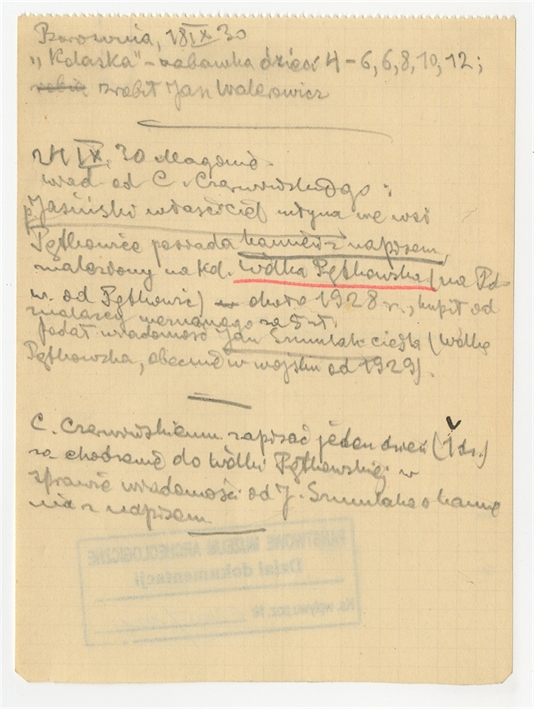 Borownia, 18 IX 30
"Kolaska" - zabawka dzieci 4 - 6, 6, 8, 10, 12;
robią zrobił Jan Walerowicz
24 IX. 30 Magonie.
wiad od C. Czerwińskiego:
p. Jasiński właściciel młyna we wsi
Pętkowice posiada kamień z napisem,
znaleziony na kol. Wólka Pętkowska (na Pd.
w. od Pętkowic) około 1928 r., kupił od
znalazcy wernanego za 5 zł.
Podał wiadomość Jan Szmulak cieśla (Wólka
Pętkowska, obecnie w wojsku od 1929).
C. Czerwińskiemu zapisać jeden dzień (1 dz.)
za chodzenie do Wólki Pętkowskiej w
sprawie wiadomości od J. Szmulaka o kamie
niu z napisem
PAŃSTWOWE MUZEUM ARCHEOLOGICZNE
Dział dokumentacji
Ks. wpływu poz. Nr